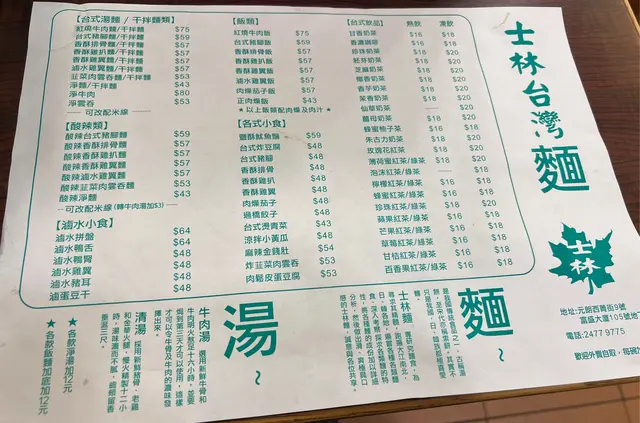 【台式湯麵 / 干拌麵類】
紅燒牛肉麵/干拌麵 $75
台式豬腳麵/干拌麵 $59
香酥排骨麵/干拌麵 $57
香酥雞扒麵/干拌麵 $57
香酥雞翼麵/干拌麵 $57
滷水雞翼麵/干拌麵 $57
韮菜肉雲吞麵/干拌麵 $53
淨麵/干拌麵 $43
淨牛肉 $80
淨雲吞 $53
── 可改配米線 ──
【酸辣類】
酸辣台式豬腳麵 $59
酸辣香酥排骨麵 $57
酸辣香酥雞扒麵 $57
酸辣香酥雞翼麵 $57
酸辣滷水雞翼麵 $57
酸辣韮菜肉雲吞麵 $53
酸辣淨麵 $43
─可改配米線 (轉牛肉湯加$3) ─
【滷水小食】
滷水拼盤 $64
滷水鴨舌 $64
滷水鴨腎 $48
滷水雞翼 $48
滷水豬耳 $48
滷蛋豆干 $48
【飯類】
紅燒牛肉飯 $75
台式豬腳飯 $59
香酥排骨飯 $57
香酥雞扒飯 $57
香酥雞翼飯 $57
滷水雞翼飯 $57
肉燥茄子飯 $57
正肉燥飯 $43
★ 以上飯類配肉燥及肉汁 ★
【各式小食】
鹽酥魷魚鬚 $59
台式炸豆腐 $48
台式豬腳 $48
香酥排骨 $48
香酥雞扒 $48
香酥雞翼 $48
肉燥茄子 $48
過橋餃子 $48
台式燙青菜 $43
涼拌小黃瓜 $48
麻辣金錢肚 $54
炸韮菜肉雲吞 $53
肉鬆皮蛋豆腐 $53
【台式飲品】 熱飲 凍飲
甘香奶茶 $16 $18
香濃咖啡 $16 $18
珍珠奶茶 $18 $20
胚芽奶茶 $18 $20
芝麻奶茶 $18 $20
椰香奶茶 $18 $20
香芋奶茶 $18 $20
茉香奶茶 $18 $20
仙草奶茶 $20
薑母奶茶 $18 $20
蜂蜜柚子茶 $16 $18
朱古力奶茶 $18 $20
玫瑰花紅茶 $18 $20
薄荷蜜紅茶/綠茶 $18 $20
泡沫紅茶/綠茶 $18
檸檬紅茶/綠茶 $16 $18
蜂蜜紅茶/綠茶 $16 $18
珍珠紅茶/綠茶 $18 $20
蘋果紅茶/綠茶 $16 $18
芒果紅茶/綠茶 $16 $18
草莓紅茶/綠茶 $16 $18
甘桔紅茶/綠茶 $16 $18
百香果紅茶/綠茶 $16 $18
士林台灣麵
士林
地址:元朗西菁街9號
富盛大廈105號地下
電話:2477 9775
歡迎外賣自取，每碗加
麵～
士林麵
湯～
牛肉湯 選用新鮮牛骨和
牛肉明火熬足十六小時，並要
焗到第三天才可以使用，這樣
才可以令牛骨及牛肉的濃味發
揮出來。
清湯 採用新鮮豬骨、老雞
和金華火腿，慢火精製十二小
時，湯味濃而不膩，齒頰留香
垂涎三尺。
★ 各款淨湯加12元
★ 各款飯麵加底加12元